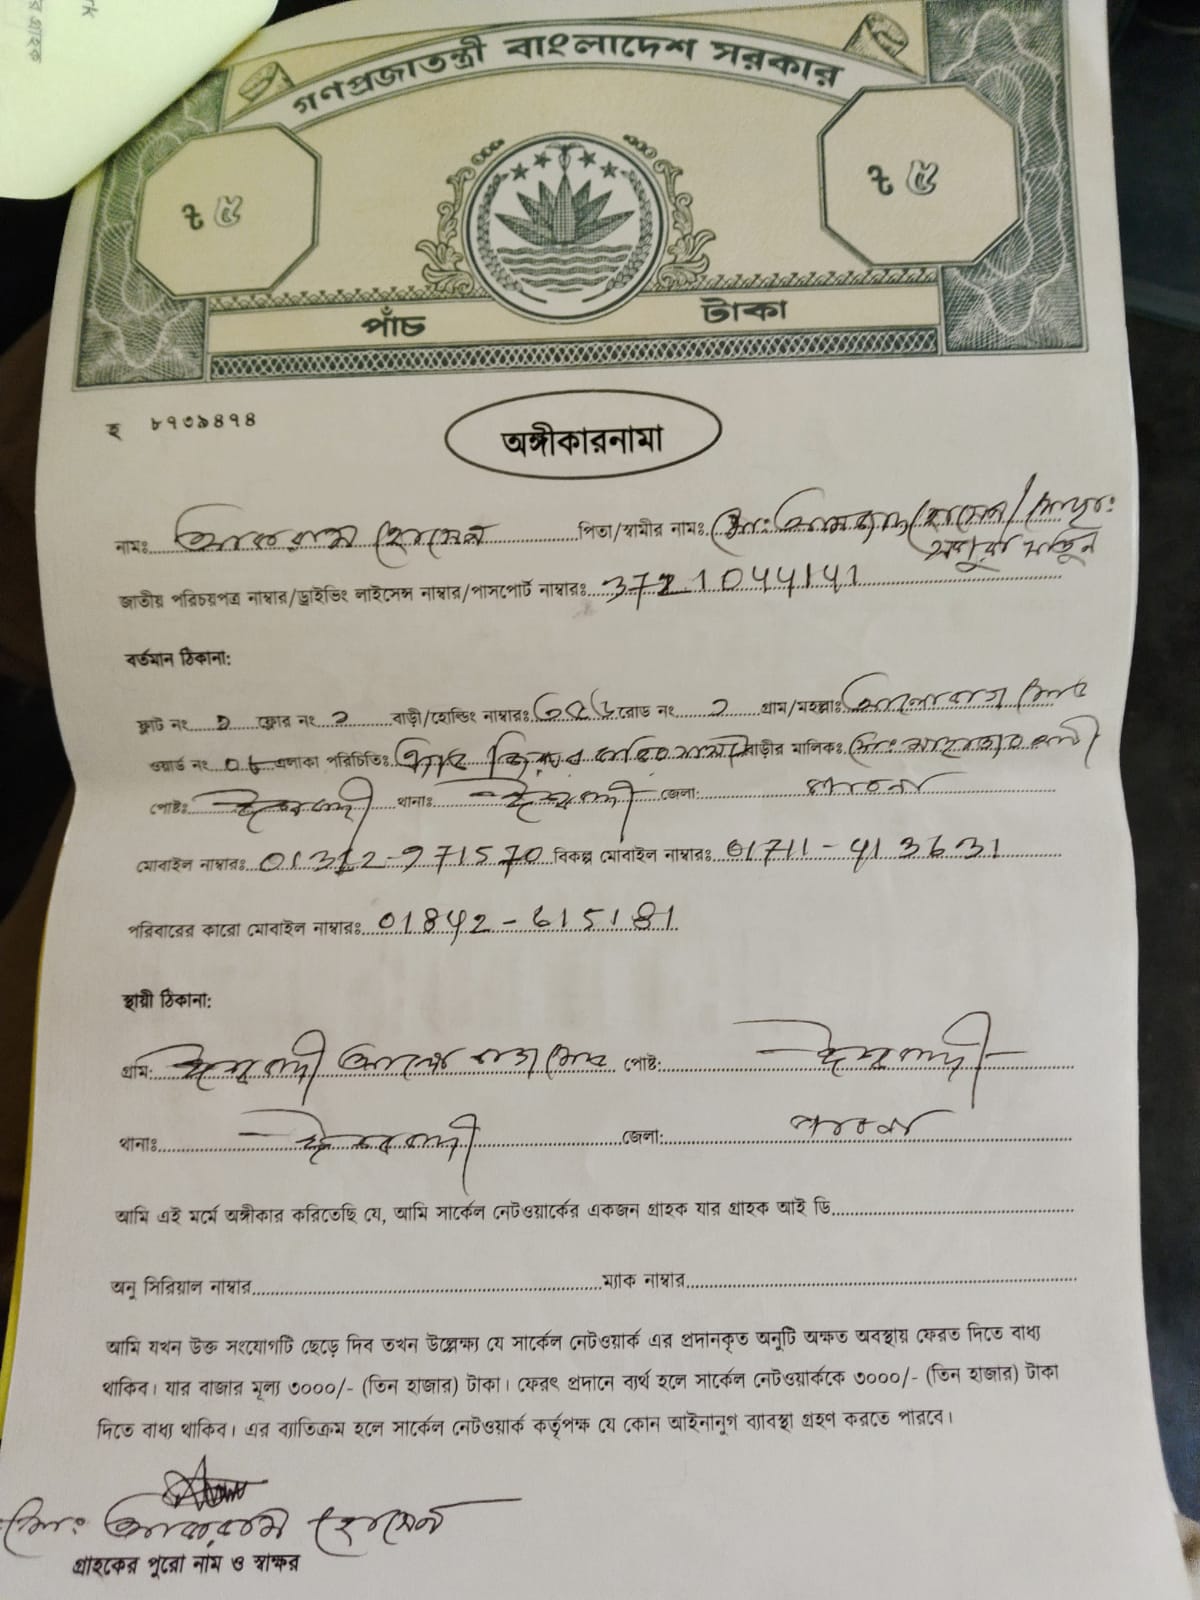 গণপ্রজাতন্ত্রী বাংলাদেশ সরকার
৳ ৫ ৳ ৫
পাঁচ টাকা
হ ৮৭৩৯৪৭৪
অঙ্গীকারনামা
নামঃ আকরাম হোসেন পিতা/স্বামীর নামঃ মোঃ আমজাদ হোসেন/
জাতীয় পরিচয়পত্র নাম্বার/ড্রাইভিং লাইসেন্স নাম্বার/পাসপোর্ট নাম্বারঃ 3721044141
বর্তমান ঠিকানা:
ফ্লাট নং ফ্লোর নং বাড়ী/হোল্ডিং নাম্বারঃ রোড নং গ্রাম/মহল্লাঃ
ওয়ার্ড নং এলাকা পরিচিতিঃ বাড়ীর মালিকঃ
পোষ্টঃ ঈশ্বরদী থানাঃ ঈশ্বরদী জেলা: পাবনা
মোবাইল নাম্বারঃ বিকল্প মোবাইল নাম্বারঃ 01711-413631
পরিবারের কারো মোবাইল নাম্বারঃ 01842-615181
স্থায়ী ঠিকানা:
গ্রাম: ঈশ্বরদী পোষ্ট: ঈশ্বরদী
থানাঃ ঈশ্বরদী জেলা: পাবনা
আমি এই মর্মে অঙ্গীকার করিতেছি যে, আমি সার্কেল নেটওয়ার্কের একজন গ্রাহক যার গ্রাহক আই ডি
অনু সিরিয়াল নাম্বার ম্যাক নাম্বার
আমি যখন উক্ত সংযোগটি ছেড়ে দিব তখন উল্লেক্ষ্য যে সার্কেল নেটওয়ার্ক এর প্রদানকৃত অনুটি অক্ষত অবস্থায় ফেরত দিতে বাধ্য
থাকিব। যার বাজার মূল্য ৩০০০/- (তিন হাজার) টাকা। ফেরৎ প্রদানে ব্যর্থ হলে সার্কেল নেটওয়ার্ককে ৩০০০/- (তিন হাজার) টাকা
দিতে বাধ্য থাকিব। এর ব্যাতিক্রম হলে সার্কেল নেটওয়ার্ক কর্তৃপক্ষ যে কোন আইনানুগ ব্যাবস্থা গ্রহণ করতে পারবে।
মোঃ আকরাম হোসেন
গ্রাহকের পুরো নাম ও স্বাক্ষর